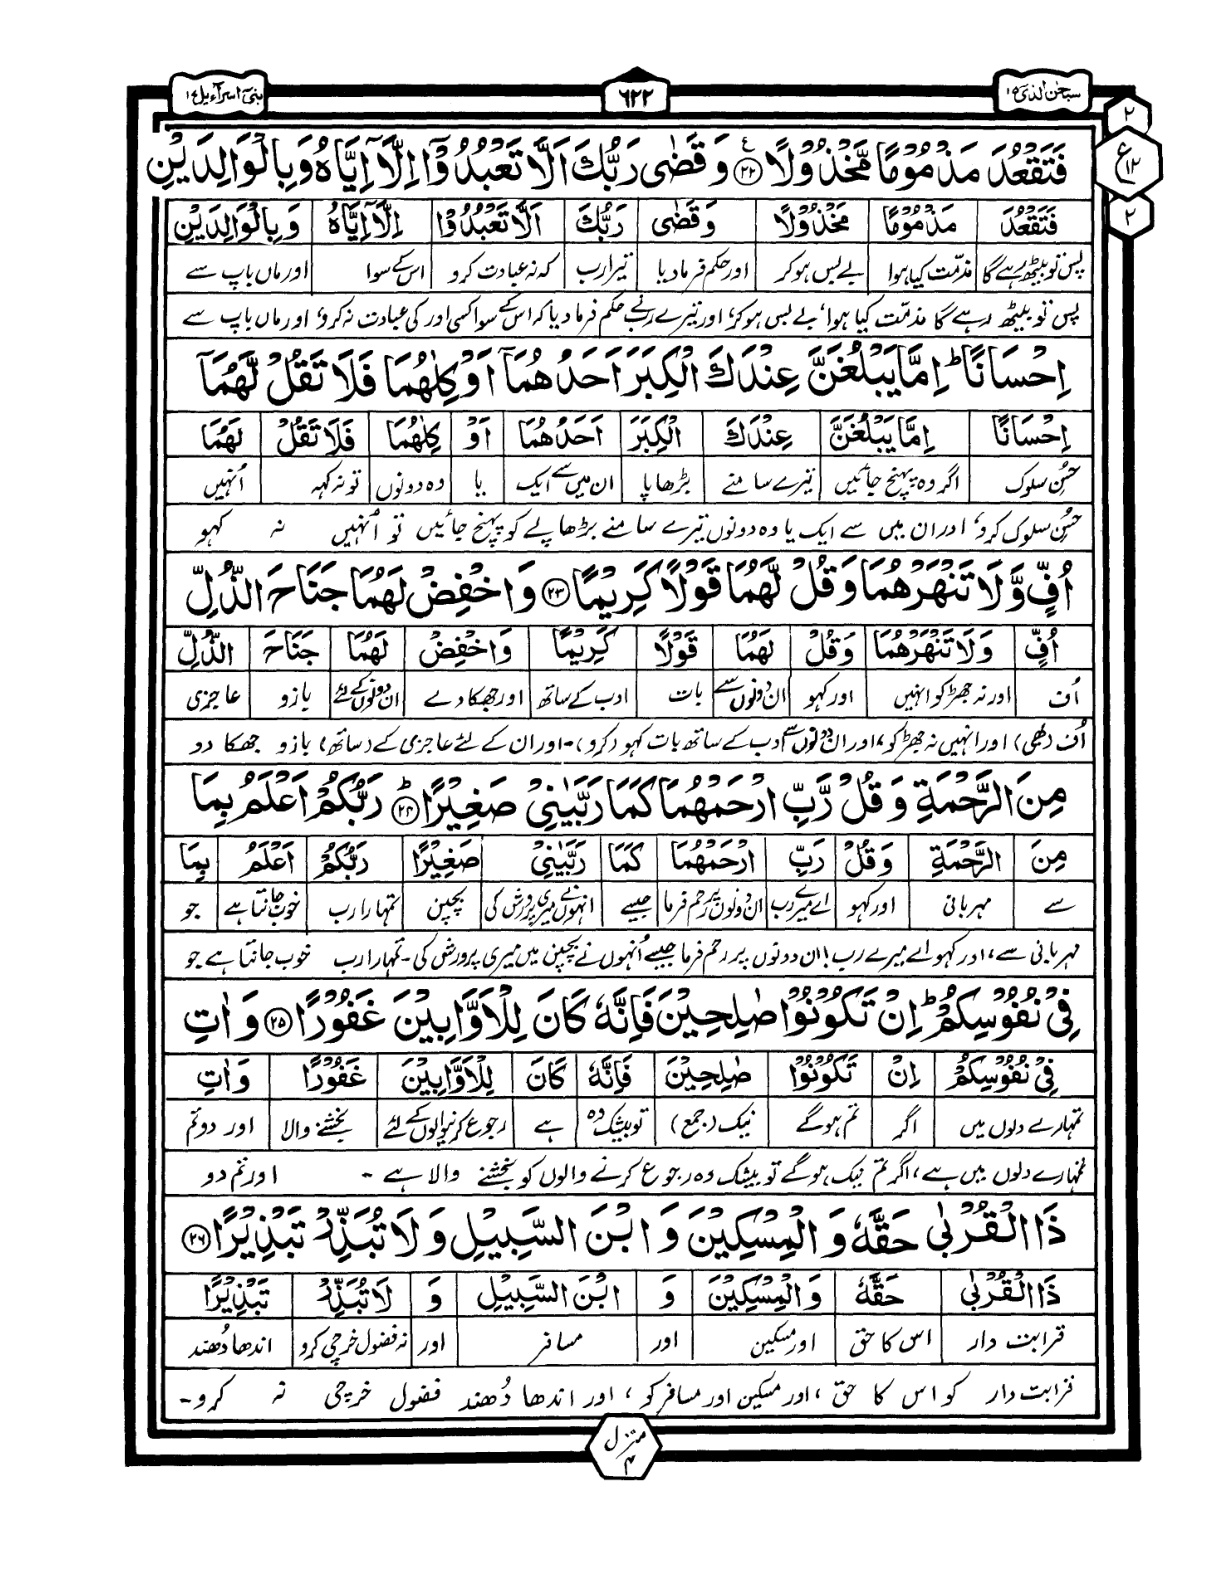 سبحن الذی ۱۵
۶۲۲
بنی اسرآءیل ۱۷
۲
ع
۱۲
۲
فَتَقْعُدَ مَذْمُوْمًا مَّخْذُوْلًا ۲۲ وَقَضٰی رَبُّكَ اَلَّا تَعْبُدُوْٓا اِلَّآ اِیَّاهُ وَبِالْوَالِدَیْنِ
فَتَقْعُدَ مَذْمُوْمًا مَّخْذُوْلًا وَقَضٰی رَبُّكَ اَلَّا تَعْبُدُوْٓا اِلَّآ اِیَّاهُ وَبِالْوَالِدَیْنِ
پس تو بیٹھ رہے گا مذمّت کیا ہوا بے بس ہو کر اور حکم فرما دیا تیرا رب کہ نہ عبادت کرو اس کے سوا اور ماں باپ سے
پس تو بیٹھ رہے گا مذمّت کیا ہوا، بے بس ہو کر، اور تیرے رب نے حکم فرما دیا کہ اس کے سوا کسی اور کی عبادت نہ کرو، اور ماں باپ سے
اِحْسَانًا ؕ اِمَّا یَبْلُغَنَّ عِنْدَكَ الْكِبَرَ اَحَدُهُمَآ اَوْ كِلٰهُمَا فَلَا تَقُلْ لَّهُمَآ
اِحْسَانًا اِمَّا یَبْلُغَنَّ عِنْدَكَ الْكِبَرَ اَحَدُهُمَآ اَوْ كِلٰهُمَا فَلَا تَقُلْ لَهُمَا
حُسن سلوک اگر وہ پہنچ جائیں تیرے سامنے بڑھاپا ان میں سے ایک یا وہ دونوں تو نہ کہہ اُنہیں
حُسن سلوک کرو، اور ان میں سے ایک یا وہ دونوں تیرے سامنے بڑھاپے کو پہنچ جائیں تو اُنہیں نہ کہو
اُفٍّ وَّلَا تَنْهَرْهُمَا وَقُلْ لَّهُمَا قَوْلًا كَرِیْمًا ۲۳ وَاخْفِضْ لَهُمَا جَنَاحَ الذُّلِّ
اُفٍّ وَلَا تَنْهَرْهُمَا وَقُلْ لَهُمَا قَوْلًا كَرِیْمًا وَاخْفِضْ لَهُمَا جَنَاحَ الذُّلِّ
اُف اور نہ جھڑکو انہیں اور کہو ان دونوں سے بات ادب کے ساتھ اور جھکا دے ان دونوں کے لئے بازو عاجزی
اُف (بھی) اور انہیں نہ جھڑکو، اور ان دونوں سے ادب کے ساتھ بات کہو (کرو)۔ اور ان کے لئے عاجزی کے (ساتھ) بازو جھکا دو
مِنَ الرَّحْمَةِ وَقُلْ رَّبِّ ارْحَمْهُمَا كَمَا رَبَّیٰنِیْ صَغِیْرًا ؕ ۲۴ رَبُّكُمْ اَعْلَمُ بِمَا
مِنَ الرَّحْمَةِ وَقُلْ رَبِّ ارْحَمْهُمَا كَمَا رَبَّیٰنِیْ صَغِیْرًا رَبُّكُمْ اَعْلَمُ بِمَا
سے مہربانی اور کہو اے میرے رب ان دونوں پر رحم فرما جیسے انہوں نے میری پرورش کی بچپن تمہارا رب خوب جانتا ہے جو
مہربانی سے، اور کہو اے میرے رب! ان دونوں پر رحم فرما جیسے اُنہوں نے بچپن میں میری پرورش کی۔ تمہارا رب خوب جانتا ہے جو
فِیْ نُفُوْسِكُمْ ؕ اِنْ تَكُوْنُوْا صٰلِحِیْنَ فَاِنَّهٗ كَانَ لِلْاَوَّابِیْنَ غَفُوْرًا ۲۵ وَاٰتِ
فِیْ نُفُوْسِكُمْ اِنْ تَكُوْنُوْا صٰلِحِیْنَ فَاِنَّهٗ كَانَ لِلْاَوَّابِیْنَ غَفُوْرًا وَاٰتِ
تمہارے دلوں میں اگر تم ہو گے نیک (جمع) تو بیشک وہ ہے رجوع کرنیوالوں کے لئے بخشنے والا اور دو تم
تمہارے دلوں میں ہے، اگر تم نیک ہو گے تو بیشک وہ رجوع کرنے والوں کو بخشنے والا ہے۔ اور تم دو
ذَا الْقُرْبٰی حَقَّهٗ وَالْمِسْكِیْنَ وَابْنَ السَّبِیْلِ وَلَا تُبَذِّرْ تَبْذِیْرًا ۲۶
ذَا الْقُرْبٰی حَقَّهٗ وَالْمِسْكِیْنَ وَ ابْنَ السَّبِیْلِ وَ لَا تُبَذِّرْ تَبْذِیْرًا
قرابت دار اس کا حق اور مسکین اور مسافر اور نہ فضول خرچی کرو اندھا دُھند
قرابت دار کو اس کا حق، اور مسکین اور مسافر کو، اور اندھا دُھند فضول خرچی نہ کرو۔
منزل
۴